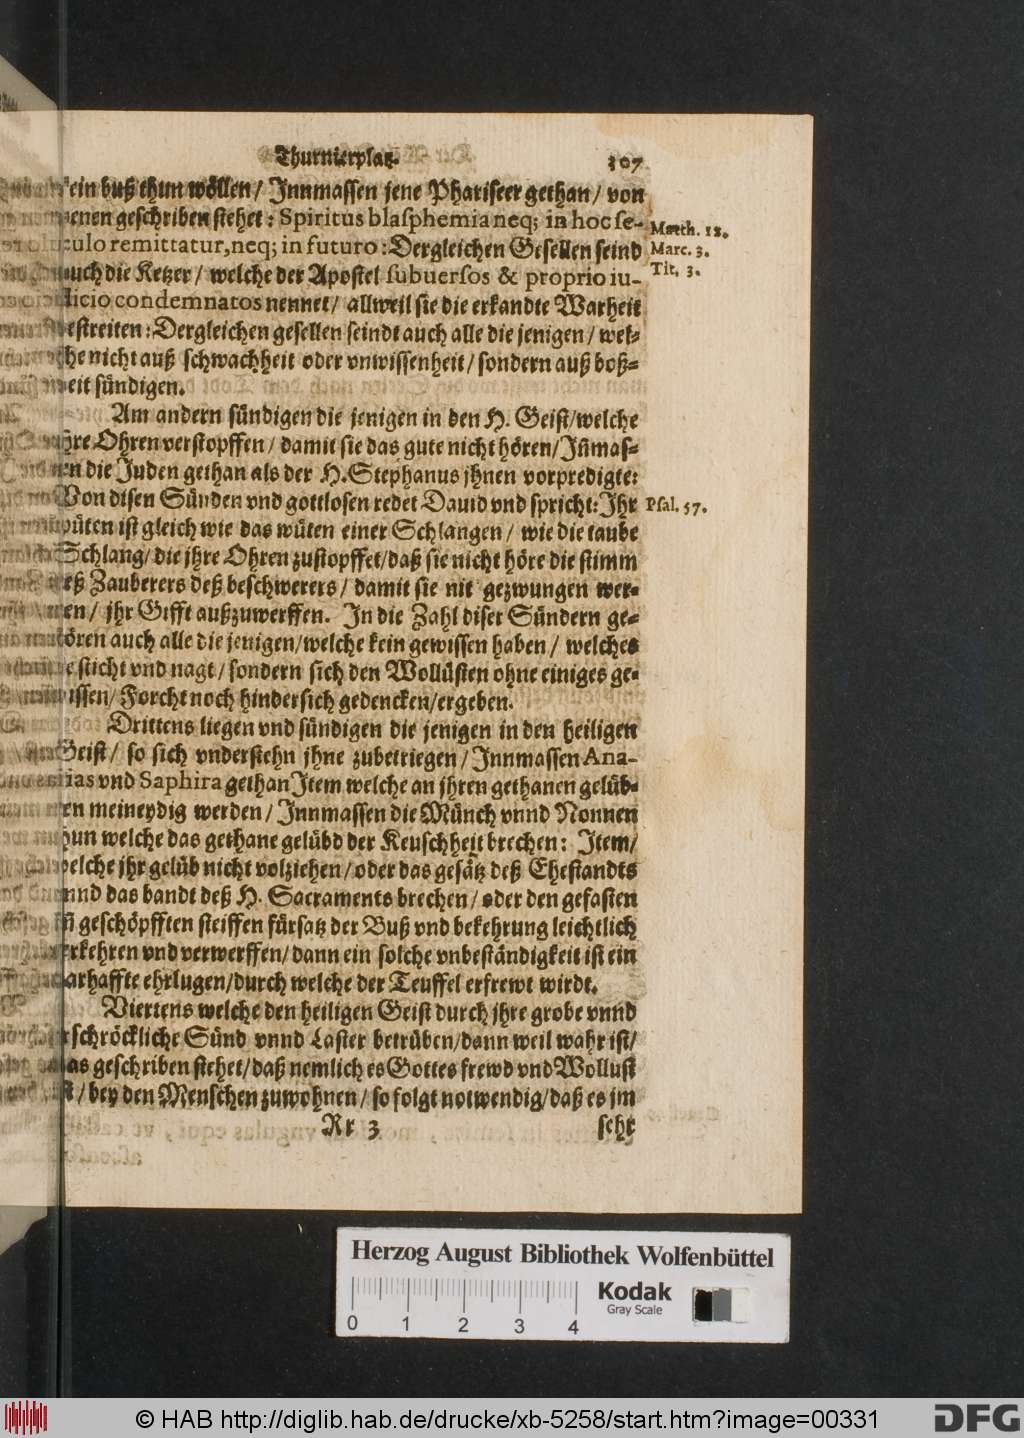 Thurnierplatz. 307
kein buß thun wöllen/ Innmassen jene Phariseer gethan/ von
denen geschriben stehet: Spiritus blasphemia neq; in hoc se-
culo remittatur, neq; in futuro: Dergleichen Gesellen seind
auch die Ketzer/ welche der Apostel subuersos & proprio iu-
dicio condemnatos nennet/ allweil sie die erkandte Warheit
bestreiten: Dergleichen gesellen seindt auch alle die jenigen/ wel-
che nicht auß schwachheit oder vnwissenheit/ sondern auß boß-
heit sündigen.
Matth. 12.
Marc. 3.
Tit. 3.
Am andern sündigen die jenigen in den H. Geist/ welche
jhre Ohren verstopffen/ damit sie das gute nicht hören/ Iñmas-
sen die Juden gethan als der H. Stephanus jhnen vorpredigte:
Von disen Sünden vnd gottlosen redet Dauid vnd spricht: Ihr
wüten ist gleich wie das wüten einer Schlangen/ wie die taube
Schlang/ die jhre Ohren zustopffet/ daß sie nicht höre die stimm
deß Zauberers deß beschwerers/ damit sie nit gezwungen wer-
den/ jhr Gifft außzuwerffen. In die Zahl diser Sündern ge-
hören auch alle die jenigen/ welche kein gewissen haben/ welches
sie sticht vnd nagt/ sondern sich den Wollüsten ohne einiges ge-
wissen/ Forcht noch hindersich gedencken/ ergeben.
Psal. 57.
Drittens liegen vnd sündigen die jenigen in den heiligen
Geist/ so sich vnderstehn jhne zubetriegen/ Innmassen Ana-
nias vnd Saphira gethan Item welche an jhren gethanen gelüb-
den meineydig werden/ Innmassen die Münch vnnd Nonnen
thun welche das gethane gelübd der Keuschheit brechen: Item/
welche jhr gelüb nicht volziehen/ oder das gesätz deß Ehestandts
vnnd das bandt deß H. Sacraments brechen/ oder den gefasten
vñ geschöpfften steiffen fürsatz der Buß vnd bekehrung leichtlich
verkehren vnd verwerffen/ dann ein solche vnbeständigkeit ist ein
warhaffte ehrlugen/ durch welche der Teuffel erfrewt wirdt.
Viertens welche den heiligen Geist durch jhre grobe vnnd
erschröckliche Sünd vnnd Laster betrüben/ dann weil wahr ist/
das geschriben stehet/ daß nemlich es Gottes frewd vnd Wollust
ist/ bey den Menschen zuwohnen/ so folgt notwendig/ daß es jm
Rr 3 sehr
Herzog August Bibliothek Wolfenbüttel
Kodak
Gray Scale
0 1 2 3 4
© HAB http://diglib.hab.de/drucke/xb-5258/start.htm?image=00331
DFG